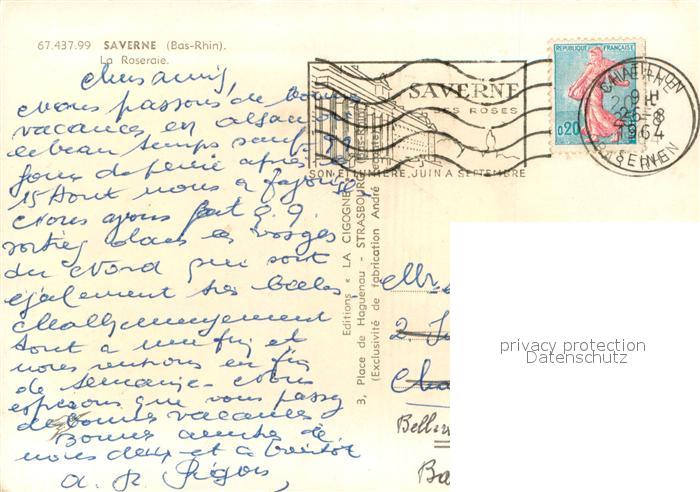 67.437.99 SAVERNE (Bas-Rhin).
La Roseraie.
Chers amis,
Nous passons de bonne
vacances en alsace
le beau temps sauf
jours de pluie après le
15 Aout nous a favorisé
Nous avons fait q. q.
sorties dans les vosges
du Nord qui sont
également très belles
Malheureusement
tout a une fin et
nous rentrons en fin
de semaine. Nous
espérons que vous passez
de bonnes vacances
Bonne amitié de
nous deux et a bientôt
SAVERNE
DES ROSES
SON ET LUMIERE, JUIN A SEPTEMBRE
REPUBLIQUE FRANÇAISE
0,20
9 H
26-8
1964
Editions « LA CIGOGNE »
3, Place de Haguenau - STRASBOURG
(Exclusivité de fabrication André
Mr
2,
Ba
privacy protection
Datenschutz